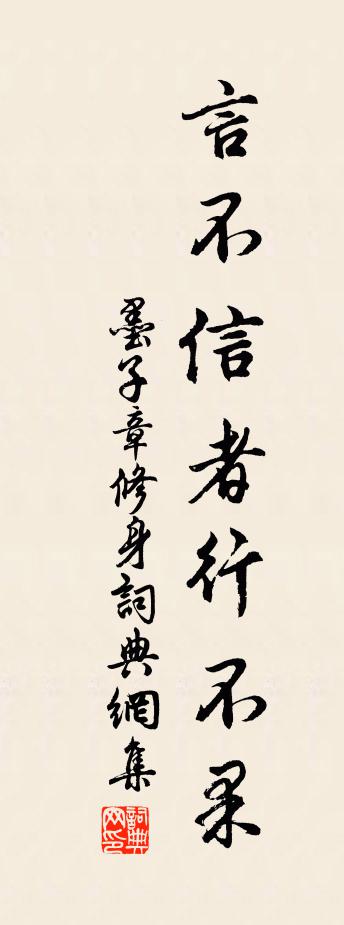 言不信者行不果
墨子章修身詞典網集
詞典網印